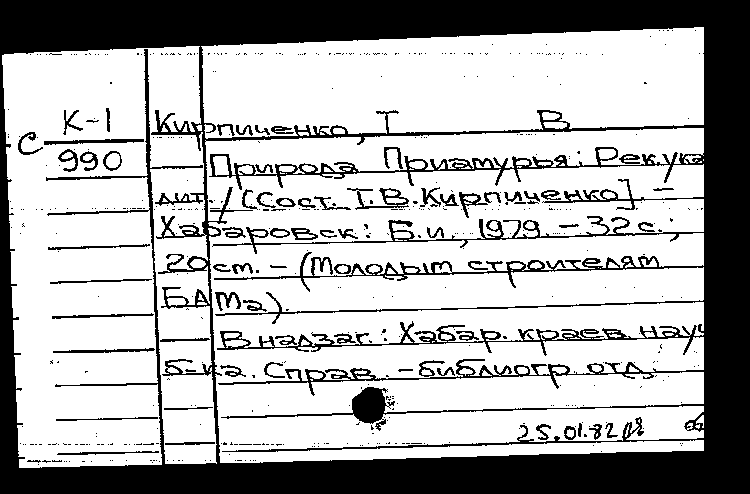 К-1
С
990
Кирпиченко, Т В
Природа Приамурья: Рек.ука
лит. / [Сост. Т.В.Кирпиченко]. –
Хабаровск: Б.и., 1979. – 32 с.;
20 см. – (Молодым строителям
БАМа).
В надзаг.: Хабар. краев. науч
б-ка. Справ. -библиогр. отд.
25.01.82